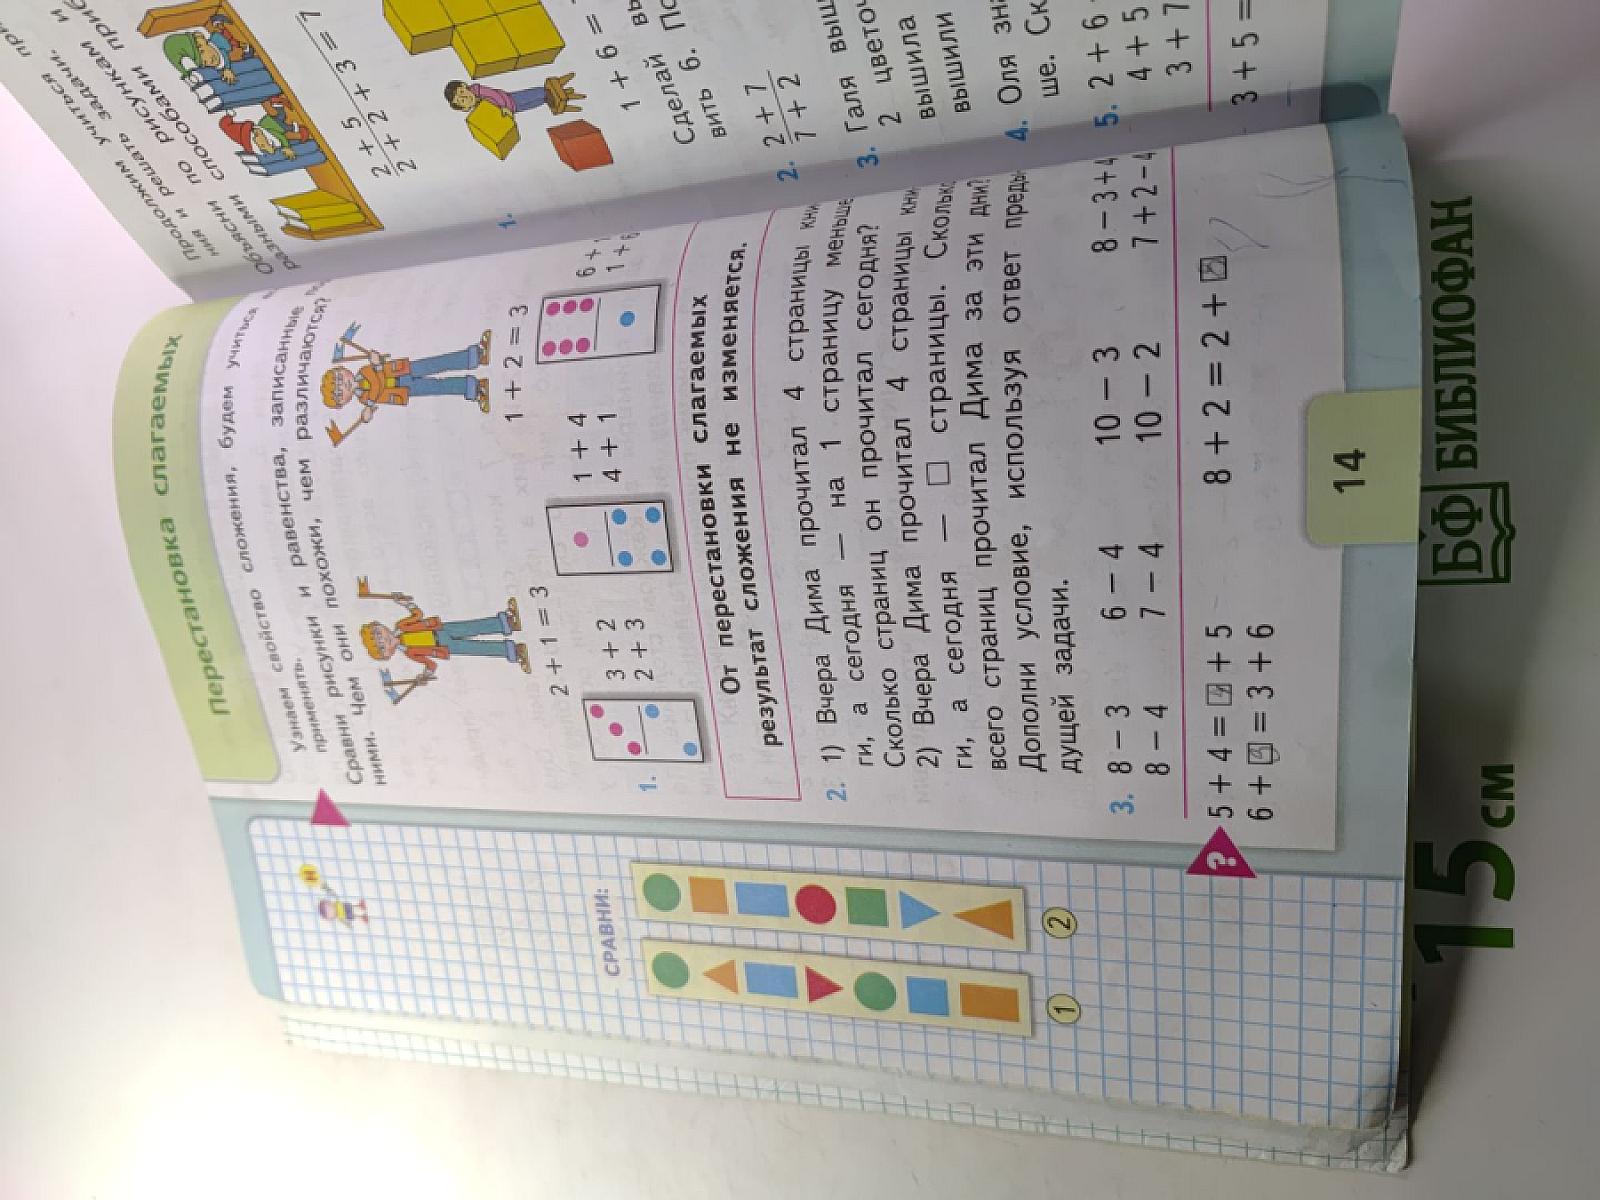 Перестановка слагаемых
Узнаем свойство сложения, будем учиться
применять.
Сравни рисунки и равенства, записанные
ними. Чем они похожи, чем различаются?
2 + 1 = 3
1 + 2 = 3
1.
3 + 2
2 + 3
1 + 4
4 + 1
6 +
1 + 6
От перестановки слагаемых
результат сложения не изменяется.
2. 1) Вчера Дима прочитал 4 страницы кни
ги, а сегодня — на 1 страницу меньше
Сколько страниц он прочитал сегодня?
2) Вчера Дима прочитал 4 страницы кни
ги, а сегодня — □ страницы. Сколько
всего страниц прочитал Дима за эти дни?
Дополни условие, используя ответ преды
дущей задачи.
3. 8 − 3 6 − 4 10 − 3 8 − 3 + 4
8 − 4 7 − 4 10 − 2 7 + 2 − 4
? 5 + 4 = 4 + 5 8 + 2 = 2 +
6 + = 3 + 6
14
СРАВНИ:
1
2
Продолжим учиться
ния и решать задачи.
Объясни по рисункам и
разными способами
2 + 5
2 + 2 + 3 = 7
1.
1 + 6 =
Сделай
вить 6.
2. 2 + 7
7 + 2
3. Галя выш
2 цветоч
вышила
вышили
4. Оля зна
ше. Ск
5. 2 + 6
4 + 5
3 + 7
3 + 5 =
15 см
БФ БИБЛИОФАН